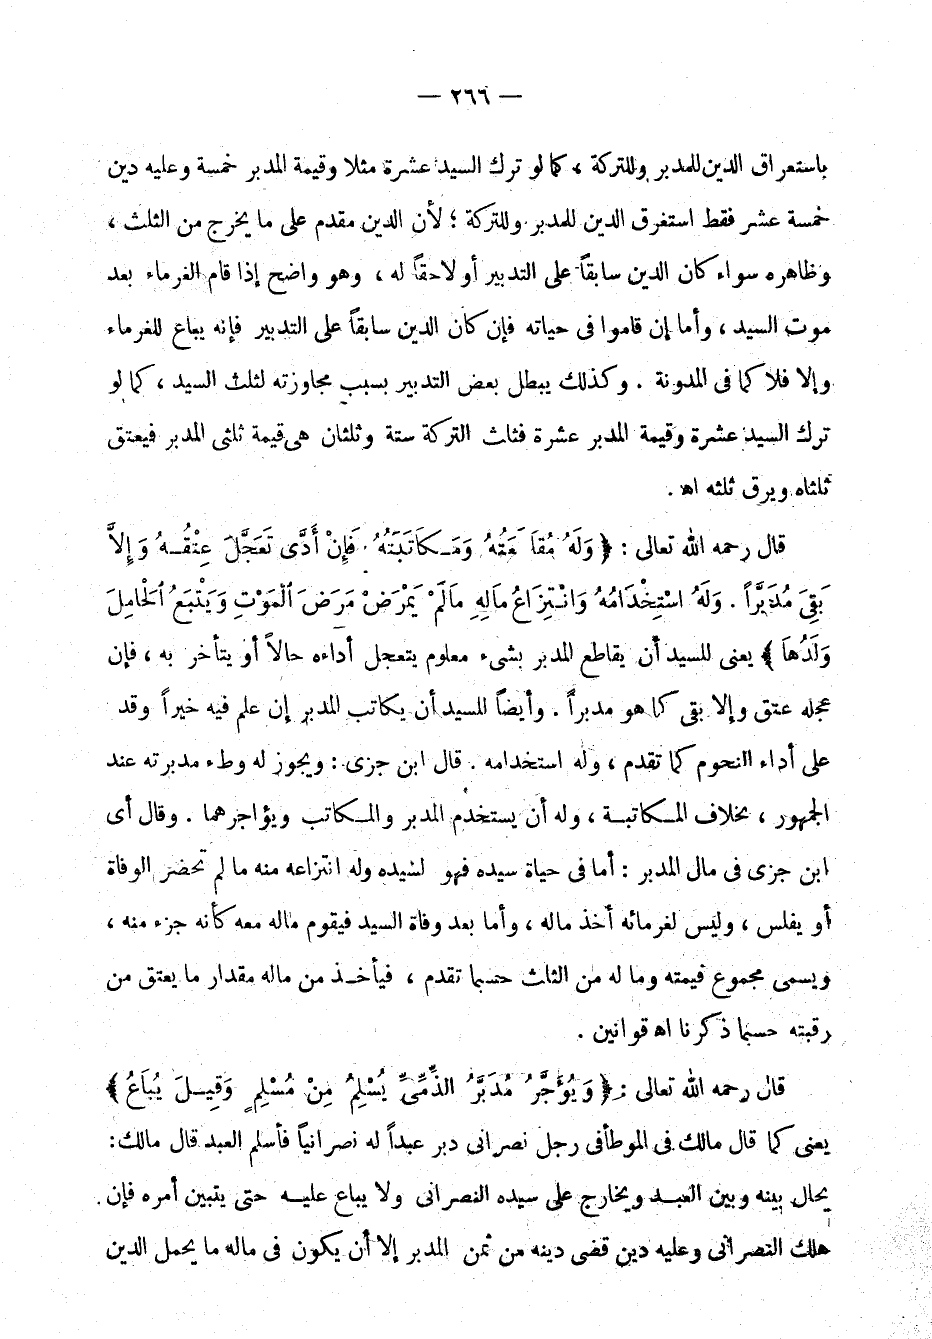 — ٢٦٦ —
باستعراق الدين للمدبر وللتركة ، كما لو ترك السيد عشرة مثلا وقيمة المدبر خمسة وعليه دين
خمسة عشر فقط استغرق الدين للمدبر وللتركة ؛ لأن الدين مقدم على ما يخرج من الثلث ،
وظاهره سواء كان الدين سابقاً على التدبير أو لاحقاً له ، وهو واضح إذا قام الغرماء بعد
موت السيد ، وأما إن قاموا فى حياته فإن كان الدين سابقاً على التدبير فإنه يباع للغرماء
وإلا فلا كما فى المدونة . وكذلك يبطل بعض التدبير بسبب مجاوزته لثلث السيد ، كما لو
ترك السيد عشرة وقيمة المدبر عشرة فثلث التركة ستة وثلثان هى قيمة ثلثى المدبر فيعتق
ثلثاه ويرق ثلثه اه .
قال رحمه الله تعالى : ﴿ وَلَهُ مُقَاطَعَتُهُ وَمَكَاتَبَتُهُ فَإِنْ أَدَّى تَعَجَّلَ عِتْقُهُ وَإِلاَّ
بَقِىَ مُدَبَّراً . وَلَهُ اسْتِخْدَامُهُ وَانْتِزَاعُ مَالِهِ مَالَمْ يَمْرَضْ مَرَضَ الْمَوْتِ وَيَتْبَعُ الْحَامِلَ
وَلَدُهَا ﴾ يعنى للسيد أن يقاطع المدبر بشىء معلوم يتعجل أداءه حالاً أو يتأخر به ، فإن
عجله عتق وإلا بقى كما هو مدبراً . وأيضاً للسيد أن يكاتب المدبر إن علم فيه خيراً وقد
على أداء النحوم كما تقدم ، وله استخدامه . قال ابن جزى : ويجوز له وطء مدبرته عند
الجمهور ، بخلاف المكاتبة ، وله أن يستخدم المدبر والمكاتب ويؤاجرهما . وقال أى
ابن جزى فى مال المدبر : أما فى حياة سيده فهو لسيده وله انتزاعه منه ما لم تحضر الوفاة
أو يفلس ، وليس لغرمائه أخذ ماله ، وأما بعد وفاة السيد فيقوم ماله معه كأنه جزء منه ،
ويسمى مجموع قيمته وما له من الثلث حسبما تقدم ، فيأخذ من ماله مقدار ما يعتق من
رقبته حسبما ذكرنا اه قوانين .
قال رحمه الله تعالى : ﴿ وَيُؤَجَّرُ مُدَبَّرُ الذِّمِّىِّ يُسْلِمُ مِنْ مُسْلِمٍ وَقِيلَ يُبَاعُ ﴾
يعنى كما قال مالك فى الموطأ فى رجل نصرانى دبر عبداً له نصرانياً فأسلم العبد قال مالك :
يحال بينه وبين العبد ويخارج على سيده النصرانى ولا يباع عليه حتى يتبين أمره فإن
هلك النصرانى وعليه دين قضى دينه من ثمن المدبر إلا أن يكون فى ماله ما يحمل الدين